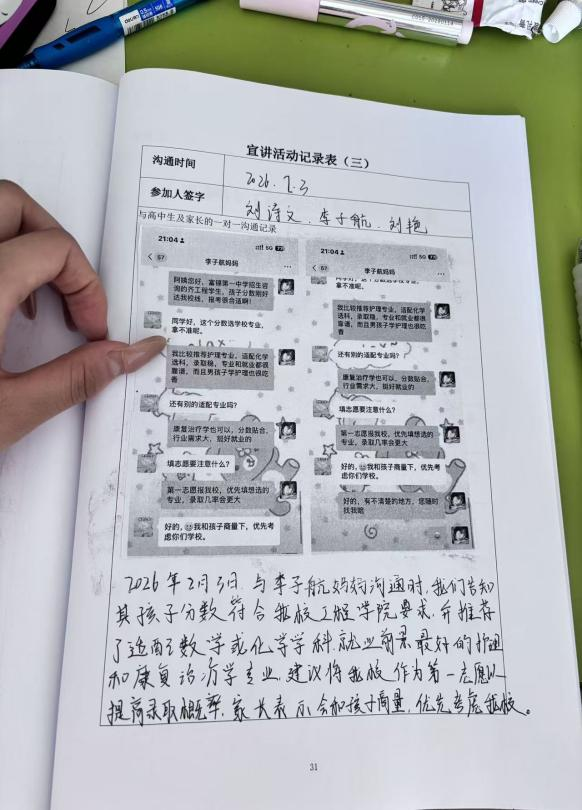 宣讲活动记录表（三）
沟通时间
2026.2.3
参加人签字
刘泽文、李子航、刘艳
与高中生及家长的一对一沟通记录
21:04
5G
57
李子航妈妈
阿姨您好，富锦第一中学招生咨
询的齐工程学生，孩子分数刚好
达我校线，报考很合适啊!
同学好，这个分数选学校专业，
拿不准呢。
我比较推荐护理专业，适配化学
选科，录取稳，专业和就业都很
靠谱，而且男孩子学护理也很吃
香
还有别的适配专业吗?
康复治疗学也可以，分数贴合，
行业需求大，挺好就业的
填志愿要注意什么?
第一志愿报我校，优先填想选的
专业，录取几率会更大
好的，我和孩子商量下，优先考
虑你们学校。
21:04
5G
57
李子航妈妈
拿不准呢。
我比较推荐护理专业，适配化学
选科，录取稳，专业和就业都很
靠谱，而且男孩子学护理也很吃
香
还有别的适配专业吗?
康复治疗学也可以，分数贴合，
行业需求大，挺好就业的
填志愿要注意什么?
第一志愿报我校，优先填想选的
专业，录取几率会更大
好的，我和孩子商量下，优先考
虑你们学校。
好的，有不清楚的地方，您随时
找我哈
2026年2月3日，与李子航妈妈沟通时，我们告知
其孩子分数符合我校工程学院要求，并推荐
了适配数学或化学等学科，就业前景最好的护理
和康复治疗学专业，建议将我校作为第一志愿以
提高录取概率，家长表示会和孩子商量，优先考虑我校。
31